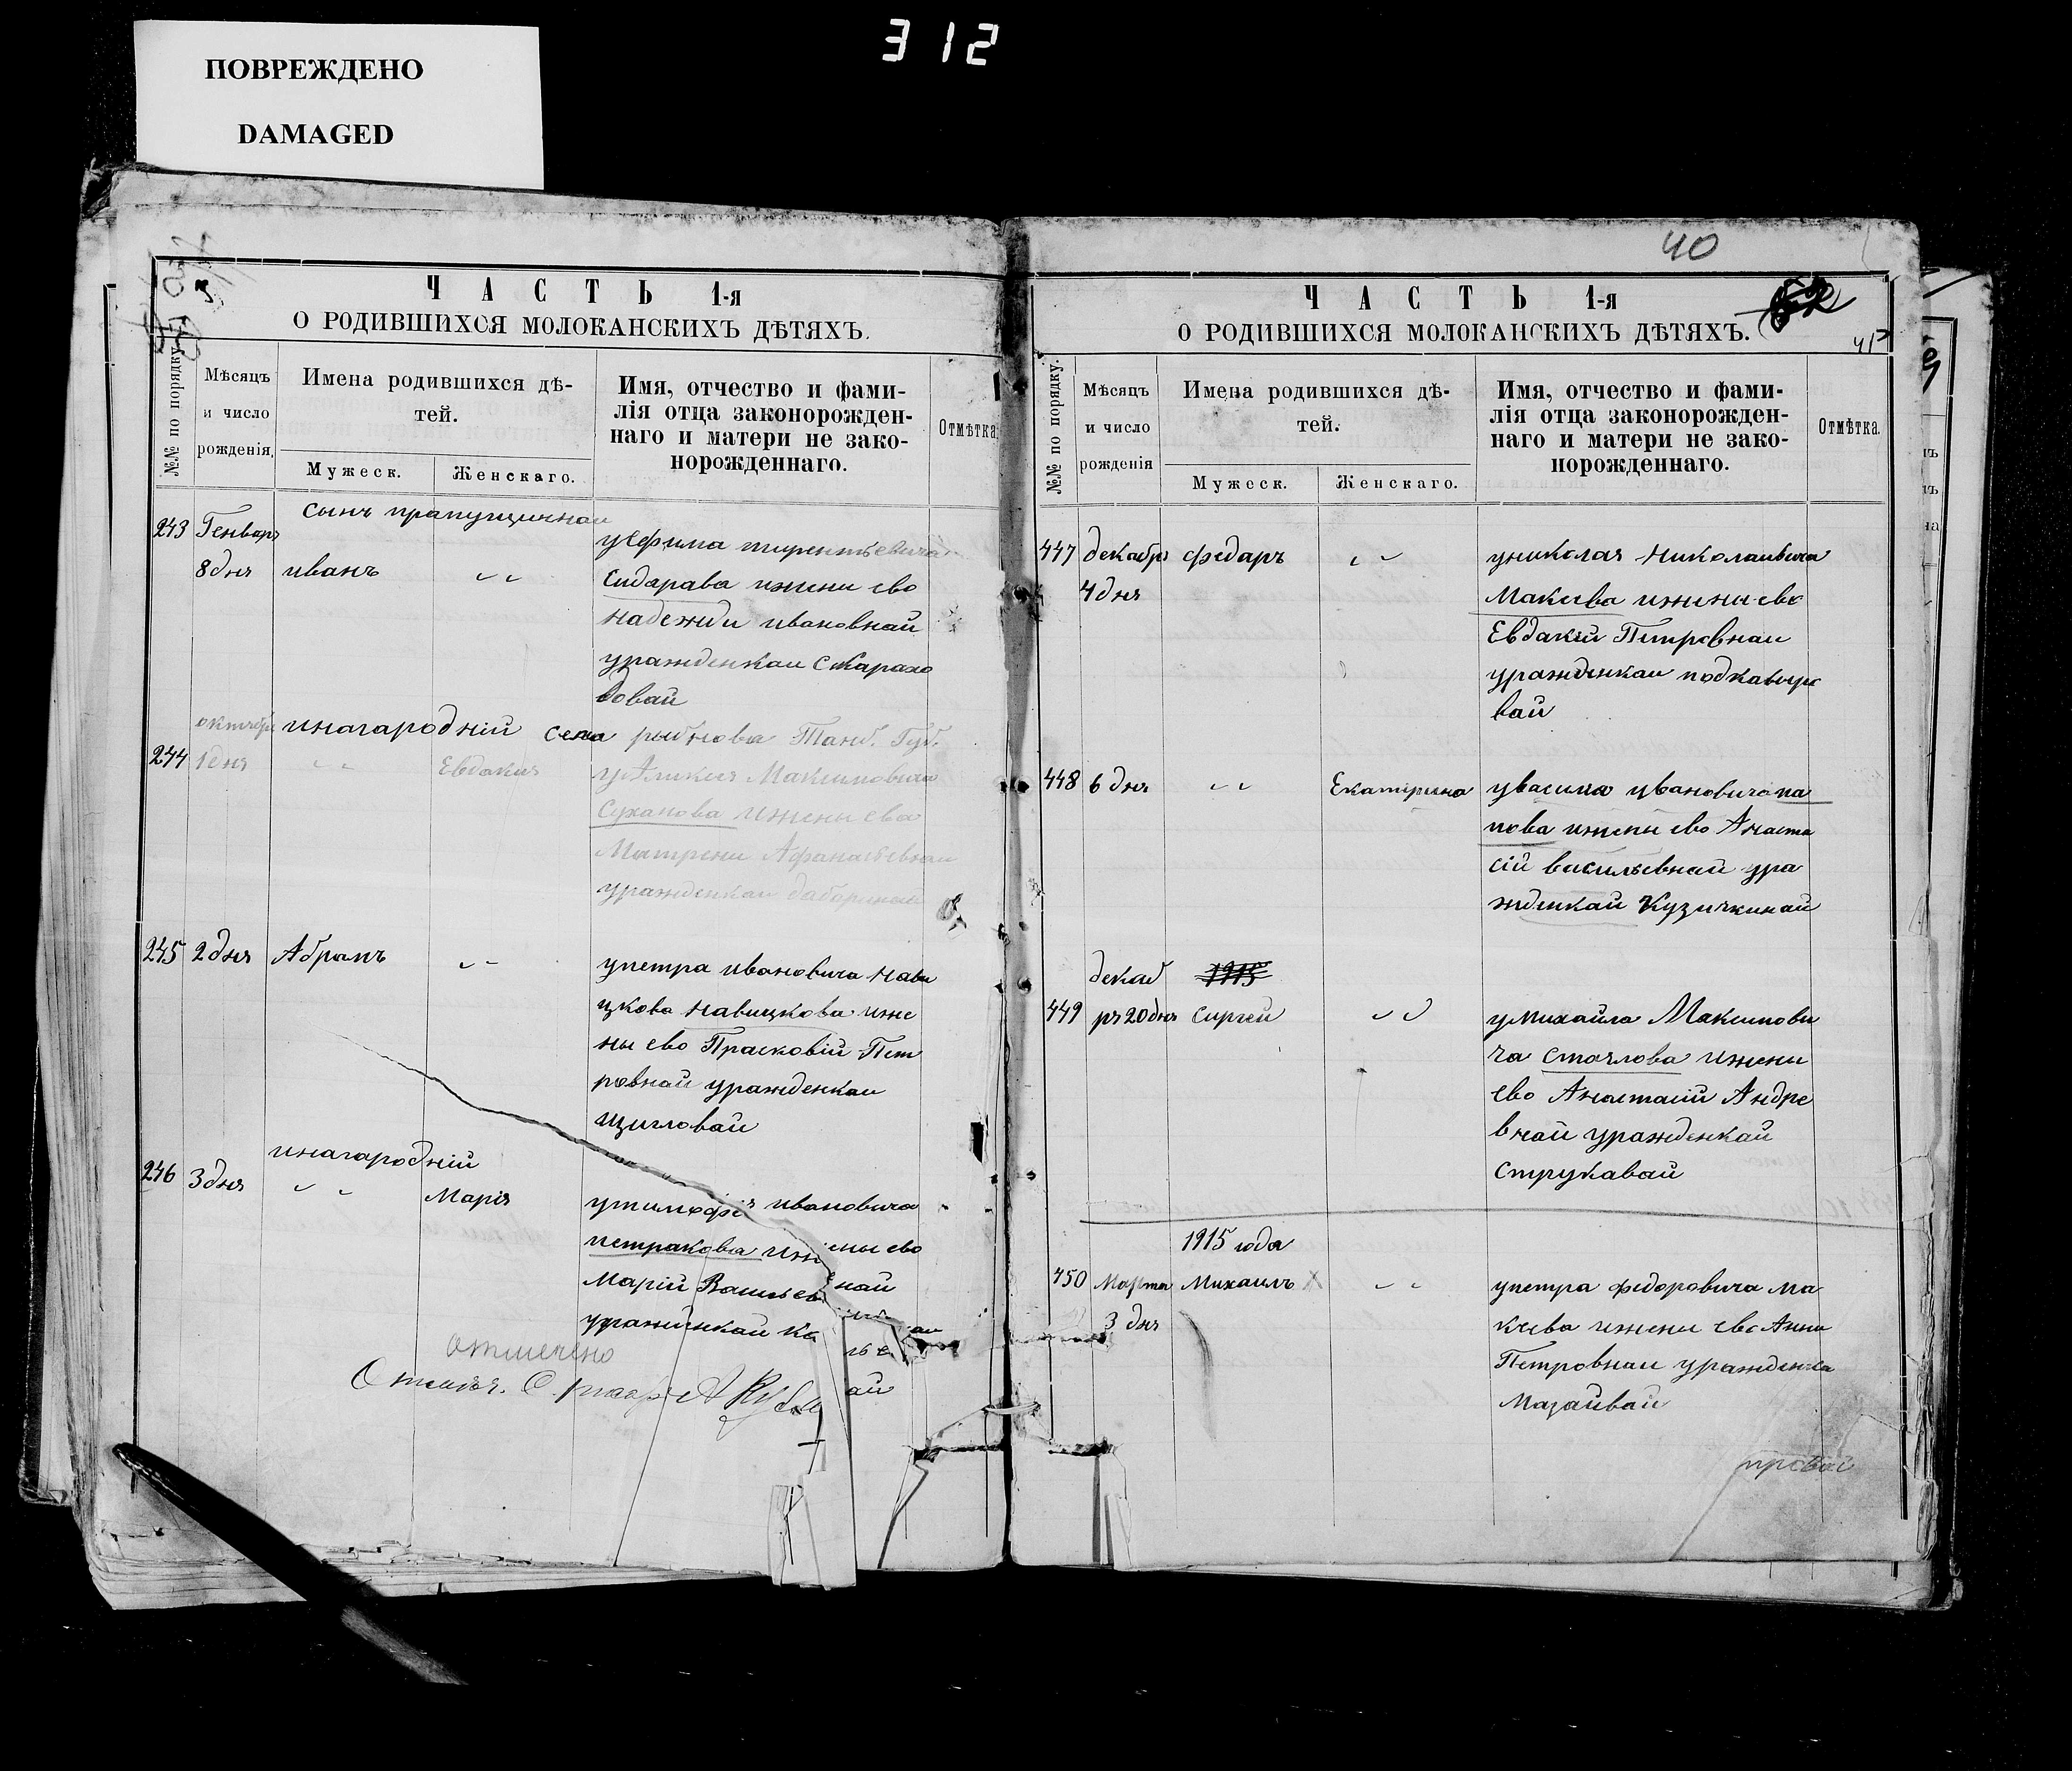 ПОВРЕЖДЕНО
DAMAGED
312
ЧАСТЬ 1-я
О РОДИВШИХСЯ МОЛОКАНСКИХЪ ДѢТЯХЪ.
№№ по порядку.
Мѣсяцъ
и число
рожденія.
Имена родившихся дѣ-
тей.
Мужеск.
Женскаго.
Имя, отчество и фами-
лія отца законорожден-
наго и матери не зако-
норожденнаго.
Отмѣтка
сынъ
243 Генварь
8 дня иванъ
уефима
сидарава ижени ево
надежди ивановнай
уражденкаи
вовай
октября инагародній села Танб. Губ.
244 1 дня Евдакия
Максимовича
Суханова ижены ево
Матрени Афанасьевнаи
уражденкаи
245 2 дня Абрамъ
упетра ивановича нави
цкова навицкова иже
ны ево Прасковій Пет
ровнай уражденкаи
щигловай
инагародній
246 3 дня Марія
утимофея ивановича
петракова ижены ево
Марій Васильевнай
уражденкай
отмечено
40
ЧАСТЬ 1-я
О РОДИВШИХСЯ МОЛОКАНСКИХЪ ДѢТЯХЪ.
№№ по порядку.
Мѣсяцъ
и число
рожденія
Имена родившихся дѣ-
тей.
Мужеск.
Женскаго.
Имя, отчество и фами-
лія отца законорожден-
наго и матери не зако-
норожденнаго.
Отмѣтка.
447 декабрь федаръ униколая николаивича
4 дня Макеева ижены ево
Евдакій Петровнаи
уражденкаи
вай
448 6 дня Екатерина увасила ивановича па
пова ижены ево Анаста
сій васильевнай ура
жденкай Кузичкинай
декаб 1915
449 рь 20 дня Сиргей умихайла Максимови
ча стоялова ижены
ево Анастасій Андре
внай уражденкай
Струкавай
1915 года
450 Марта Михаилъ упетра федоровича ма
3 дня кеева ижени ево Анни
Петровнаи уражденка
Мазаивай